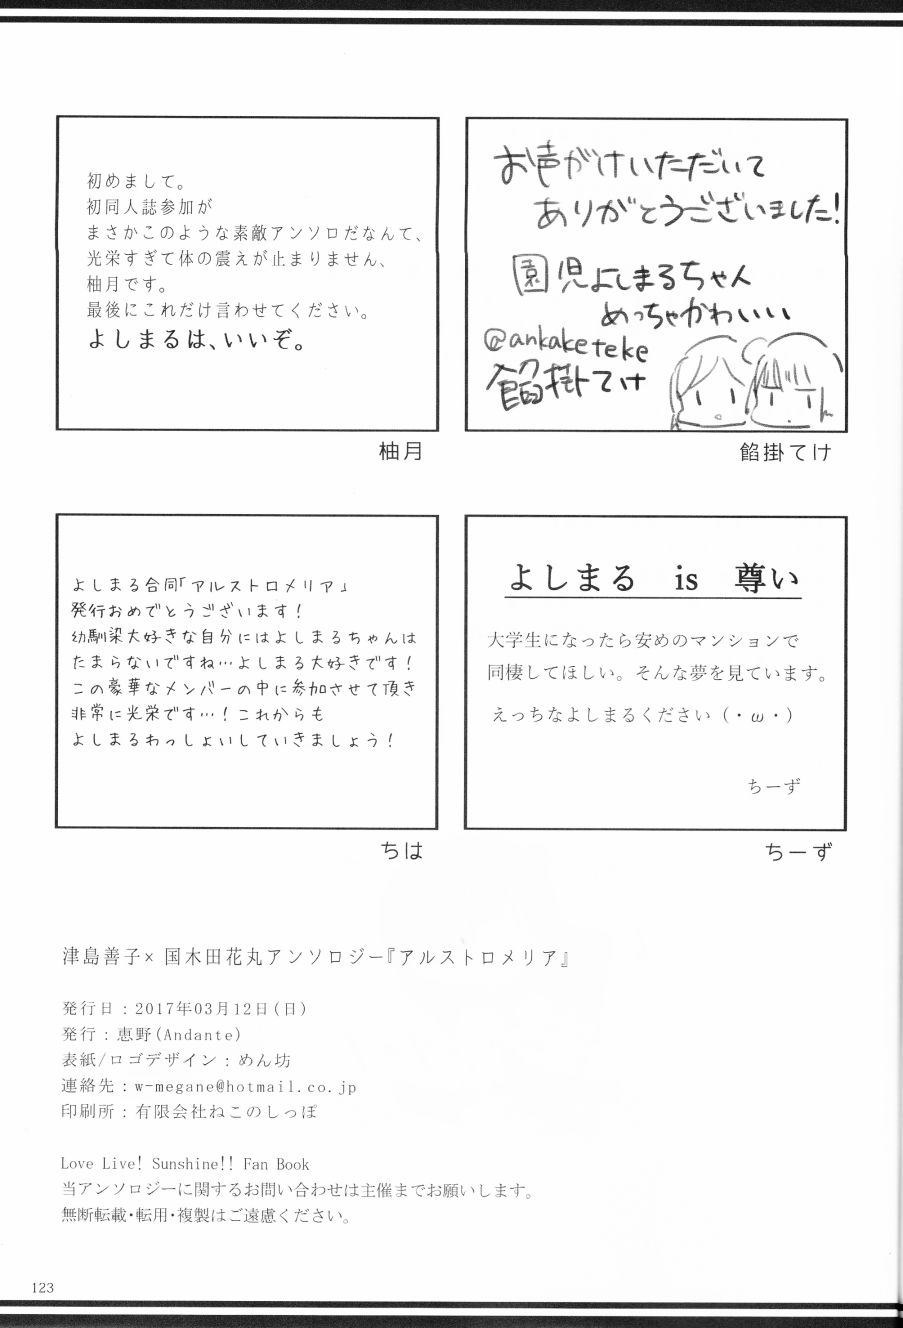 初めまして。
初同人誌参加が
まさかこのような素敵アンソロだなんて、
光栄すぎて体の震えが止まりません、
柚月です。
最後にこれだけ言わせてください。
よしまるは、いいぞ。
柚月
お声がけいただいて
ありがとうございました!
園児よしまるちゃん
めっちゃかわいい
@ankaketeke
餡掛てけ
餡掛てけ
よしまる合同「アルストロメリア」
発行おめでとうございます!
幼馴染大好きな自分にはよしまるちゃんは
たまらないですね…よしまる大好きです!
この豪華なメンバーの中に参加させて頂き
非常に光栄です…!これからも
よしまるわっしょいしていきましょう!
ちは
よしまる is 尊い
大学生になったら安めのマンションで
同棲してほしい。そんな夢を見ています。
えっちなよしまるください(・ω・)
ちーず
ちーず
津島善子×国木田花丸アンソロジー『アルストロメリア』
発行日:2017年03月12日(日)
発行:恵野(Andante)
表紙/ロゴデザイン:めん坊
連絡先:w-megane@hotmail.co.jp
印刷所:有限会社ねこのしっぽ
Love Live! Sunshine!! Fan Book
当アンソロジーに関するお問い合わせは主催までお願いします。
無断転載・転用・複製はご遠慮ください。
123